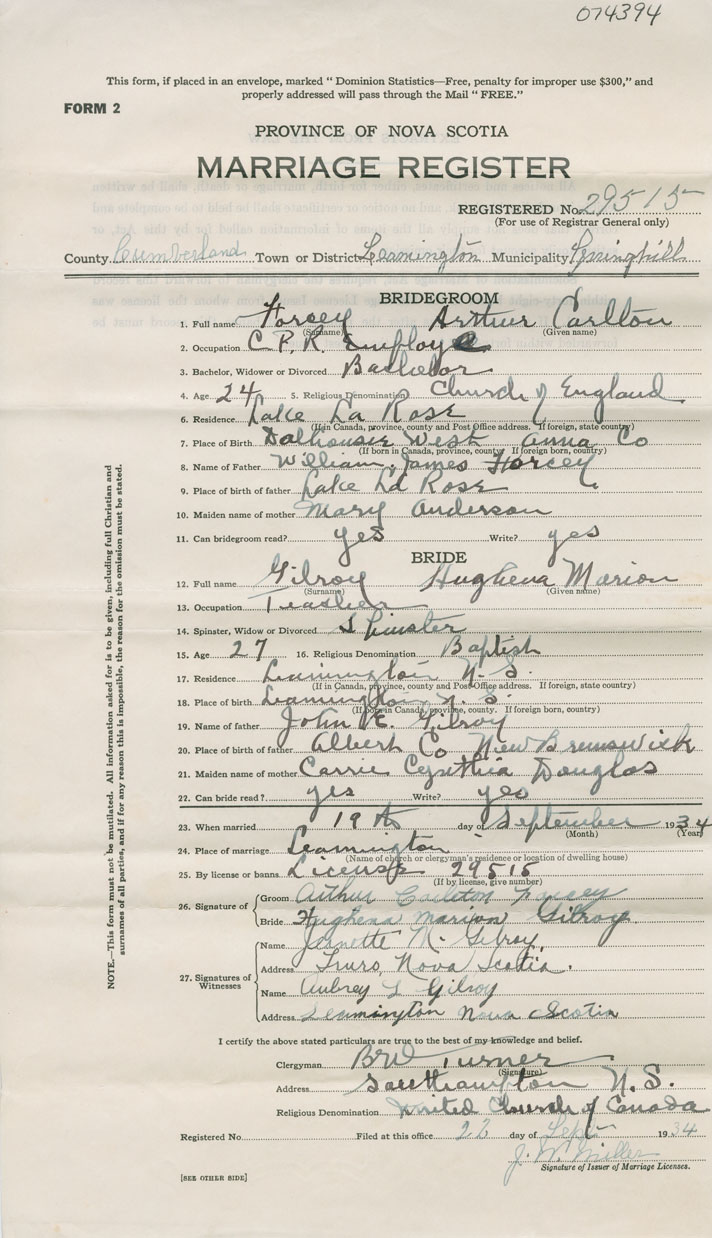 074394
This form, if placed in an envelope, marked " Dominion Statistics—Free, penalty for improper use $300," and
properly addressed will pass through the Mail " FREE."
FORM 2
PROVINCE OF NOVA SCOTIA
MARRIAGE REGISTER
REGISTERED No. 29515
(For use of Registrar General only)
County Cumberland Town or District Leamington Municipality Springhill
BRIDEGROOM
1. Full name Forsey Arthur Carlton
(Surname) (Given name)
2. Occupation C.P.R. Employe
3. Bachelor, Widower or Divorced Bachelor
4. Age 24 5. Religious Denomination Church of England
6. Residence Lake La Rose
(If in Canada, province, county and Post Office address. If foreign, state country)
7. Place of Birth Dalhousie West Anna Co
(If born in Canada, province, county. If foreign born, country)
8. Name of Father William James Forsey
9. Place of birth of father Lake La Rose
10. Maiden name of mother Mary Anderson
11. Can bridegroom read? yes Write? yes
BRIDE
12. Full name Gilroy Hughena Marion
(Surname) (Given name)
13. Occupation Teacher
14. Spinster, Widow or Divorced Spinster
15. Age 27 16. Religious Denomination Baptist
17. Residence Leamington N.S.
(If in Canada, province, county and Post Office address. If foreign, state country)
18. Place of birth Leamington N.S.
(If born in Canada, province, county. If foreign born, country)
19. Name of father John E. Gilroy
20. Place of birth of father Albert Co New Brunswick
21. Maiden name of mother Carrie Cynthia Douglas
22. Can bride read? yes Write? yes
23. When married 19th day of September 1934
(Month) (Year)
24. Place of marriage Leamington
(Name of church or clergyman's residence or location of dwelling house)
25. By license or banns License 29515
(If by license, give number)
26. Signature of Groom Arthur Carlton Forsey
Bride Hughena Marion Gilroy
27. Signatures of Witnesses
Name Jeanette M. Gilroy
Address Truro, Nova Scotia.
Name Aubrey L Gilroy
Address Leamington Nova Scotia
I certify the above stated particulars are true to the best of my knowledge and belief.
Clergyman BW Turner
(Signature)
Address Southampton N.S.
Religious Denomination United Church of Canada
Registered No. Filed at this office 22 day of Sept 1934
J. W. Miller
Signature of Issuer of Marriage Licenses.
[SEE OTHER SIDE]
NOTE.—This form must not be mutilated. All information asked for is to be given, including full Christian and
surnames of all parties, and if for any reason this is impossible, the reason for the omission must be stated.